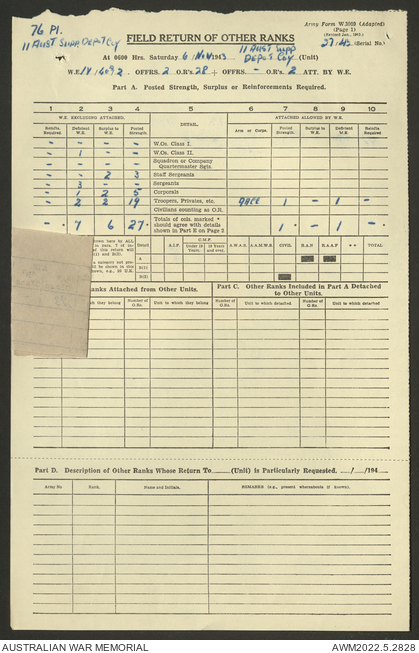 Army Form W.3009 (Adapted)
(Page 1)
76 Pl.
11 Aust Supp Depot Coy
FIELD RETURN OF OTHER RANKS
27/43 (Serial No.)
11 Aust Supp
At 0600 Hrs. Saturday 6/Nov/1943 Depot Coy (Unit)
OFFRS. 2 O.R's. 28 + OFFRS. - O.R's. 2 ATT. BY W.E.
Part A. Posted Strength, Surplus or Reinforcements Required.
1 2 3 4 5 6 7 8 9 10
W.E. EXCLUDING ATTACHED. DETAIL. ATTACHED ALLOWED BY W.E.
Reinfts. Required. Deficient W.E. Surplus to W.E. Posted Strength. Arms or Corps. Posted Strength. Surplus to W.E. Deficient W.E. Reinfts. Required.
- - - - W.Os. Class I.
- 1 - - W.Os. Class II.
- - - - Squadron or Company
Quartermaster Sgts.
- - 2 3 Staff Sergeants
- 3 - - Sergeants
- 1 2 5 Corporals
- 2 2 19 Troopers, Privates, etc. 1 - 1 -
Civilians counting as O.R.
- 7 6 27 Totals of cols. marked *
should agree with details
shown in Part E on Page 2 1 - 1 -
Detail A.I.F. C.M.F. A.W.A.S. A.A.M.W.S. CIVIL R.A.N R.A.A.F ** TOTAL
Under 19 Years. 19 Years and over.
A
B(I)
B(II)
Ranks Attached from Other Units.
Part C. Other Ranks Included in Part A Detached
to Other Units.
Unit to which they belong Number of O.Rs. Unit to which they belong Number of O.Rs. Unit to which detached Number of O.Rs. Unit to which detached
Part D. Description of Other Ranks Whose Return To (Unit) is Particularly Requested. / /194
Army No Rank. Name and Initials. REMARKS (e.g., present whereabouts if known).
AUSTRALIAN WAR MEMORIAL AWM2022.5.2828